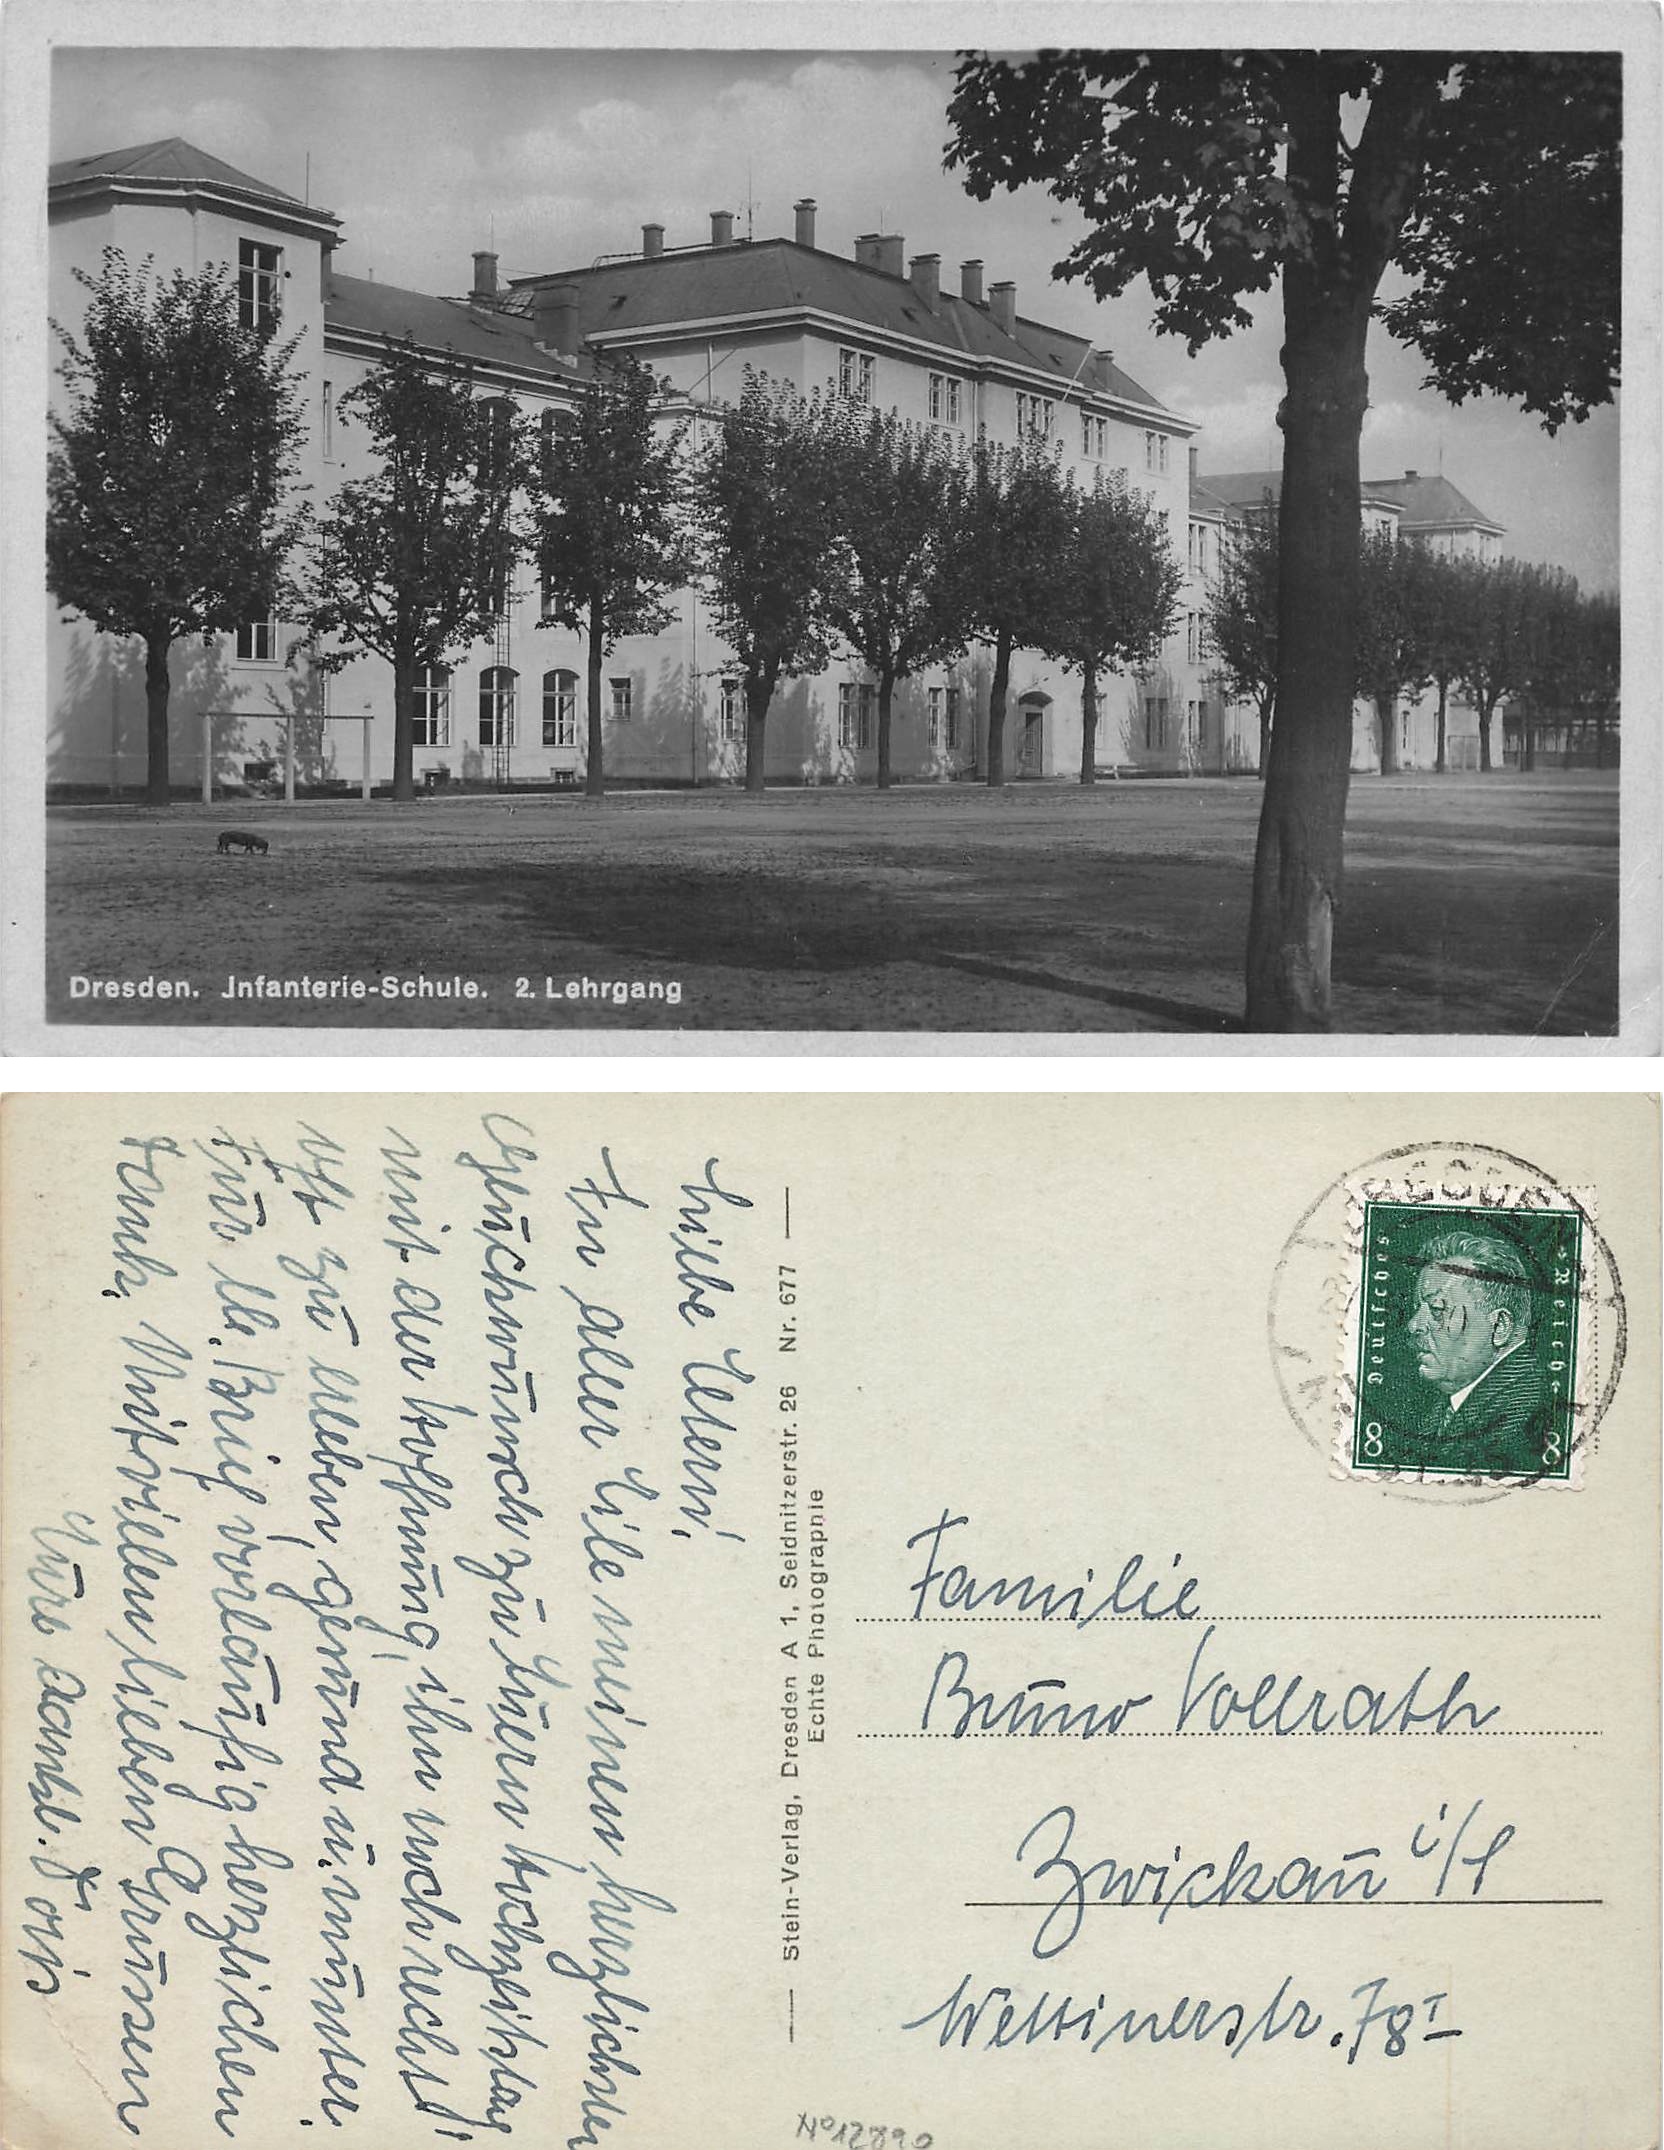 Dresden. Jnfanterie-Schule. 2. Lehrgang
Liebe Eltern!
In aller Eile meinen herzlichsten
Glückwunsch zu Euern Hochzeitstag
mit der Hoffnung, ihn noch recht
oft zu erleben, gesund u. munter.
Für lb. Brief vorläufig herzlichen
Dank. Mit vielen lieben Grüssen
Eure dankb.
Stein-Verlag, Dresden A 1, Seidnitzerstr. 26 Nr. 677
Echte Photographie
Deutsches Reich
8 8
Familie
Bruno Vollrath
Zwickau i/S
Wettinerstr. 78 I
No 12890